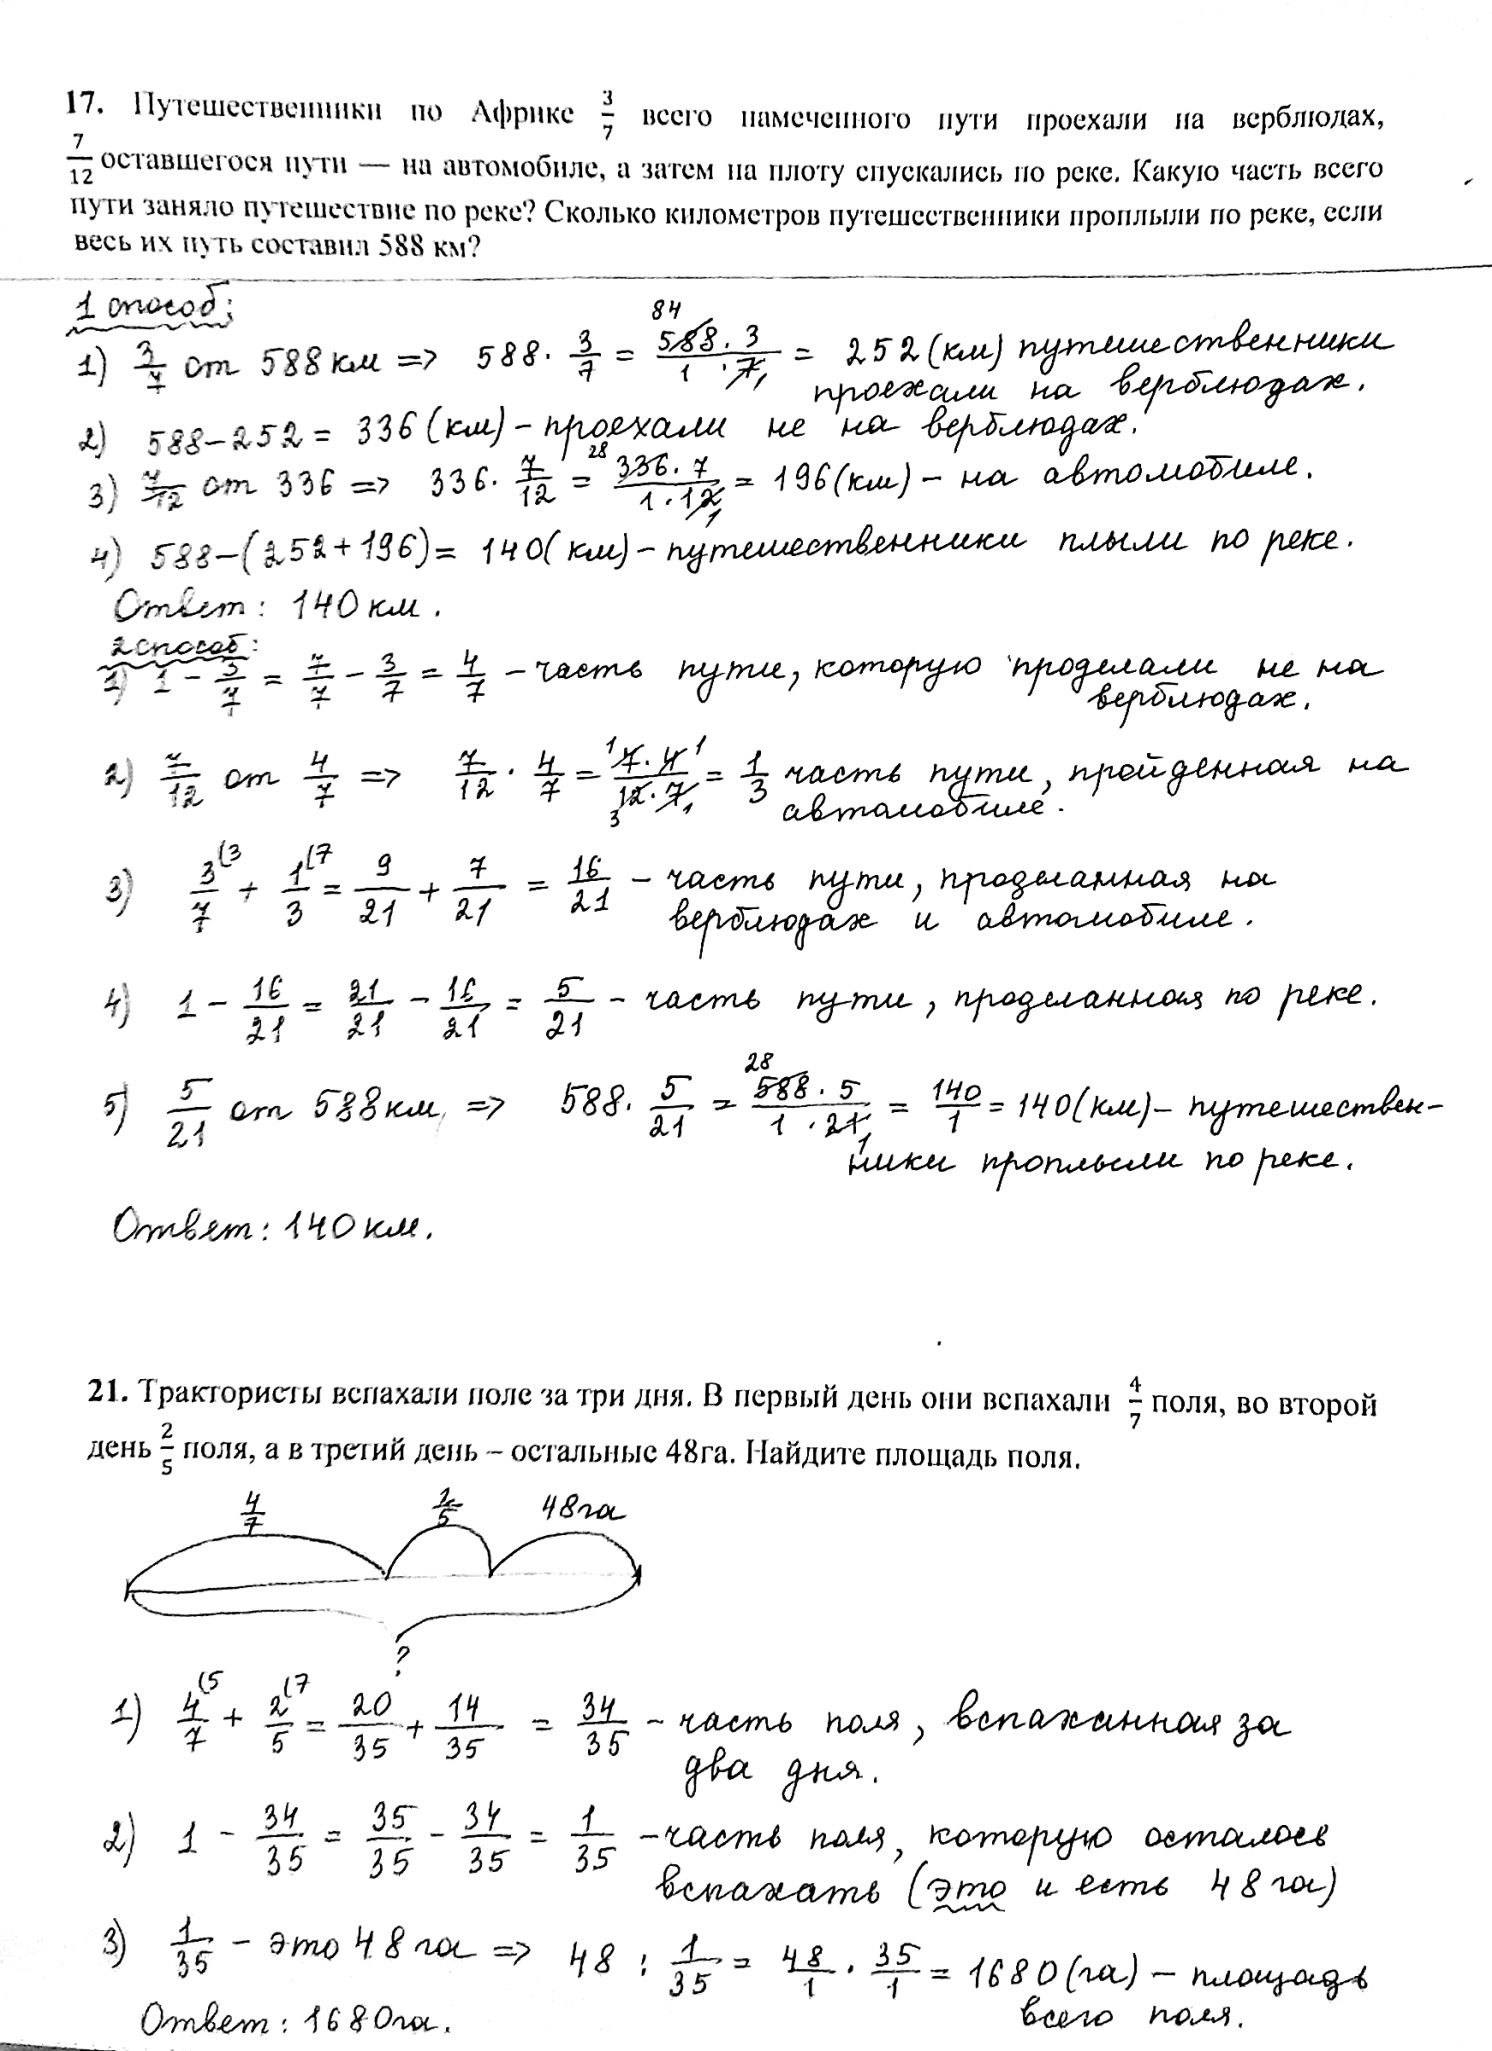 17. Путешественники по Африке 3/7 всего намеченного пути проехали на верблюдах,
7/12 оставшегося пути — на автомобиле, а затем на плоту спускались по реке. Какую часть всего
пути заняло путешествие по реке? Сколько километров путешественники проплыли по реке, если
весь их путь составил 588 км?
1 способ:
1) 3/7 от 588 км => 588 · 3/7 = (588 · 3)/(1 · 7) = 252 (км) путешественники
84
1
проехали на верблюдах.
2) 588 − 252 = 336 (км) – проехали не на верблюдах.
3) 7/12 от 336 => 336 · 7/12 = (336 · 7)/(1 · 12) = 196 (км) – на автомобиле.
28
1
4) 588 − (252 + 196) = 140 (км) – путешественники плыли по реке.
Ответ: 140 км.
2 способ:
1) 1 − 3/7 = 7/7 − 3/7 = 4/7 – часть пути, которую проделали не на
верблюдах.
2) 7/12 от 4/7 => 7/12 · 4/7 = (7 · 4)/(12 · 7) = 1/3 часть пути, пройденная на
1 1
3 1
автомобиле.
3) 3/7 (3 + 1/3 (7 = 9/21 + 7/21 = 16/21 – часть пути, проделанная на
верблюдах и автомобиле.
4) 1 − 16/21 = 21/21 − 16/21 = 5/21 – часть пути, проделанная по реке.
5) 5/21 от 588 км => 588 · 5/21 = (588 · 5)/(1 · 21) = 140/1 = 140 (км) – путешествен-
28
1
ники проплыли по реке.
Ответ: 140 км.
21. Трактористы вспахали поле за три дня. В первый день они вспахали 4/7 поля, во второй
день 2/5 поля, а в третий день – остальные 48га. Найдите площадь поля.
4/7 2/5 48 га
?
1) 4/7 (5 + 2/5 (7 = 20/35 + 14/35 = 34/35 – часть поля, вспаханная за
два дня.
2) 1 − 34/35 = 35/35 − 34/35 = 1/35 – часть поля, которую осталось
вспахать (это и есть 48 га)
3) 1/35 – это 48 га => 48 : 1/35 = 48/1 · 35/1 = 1680 (га) – площадь
всего поля.
Ответ: 1680 га.